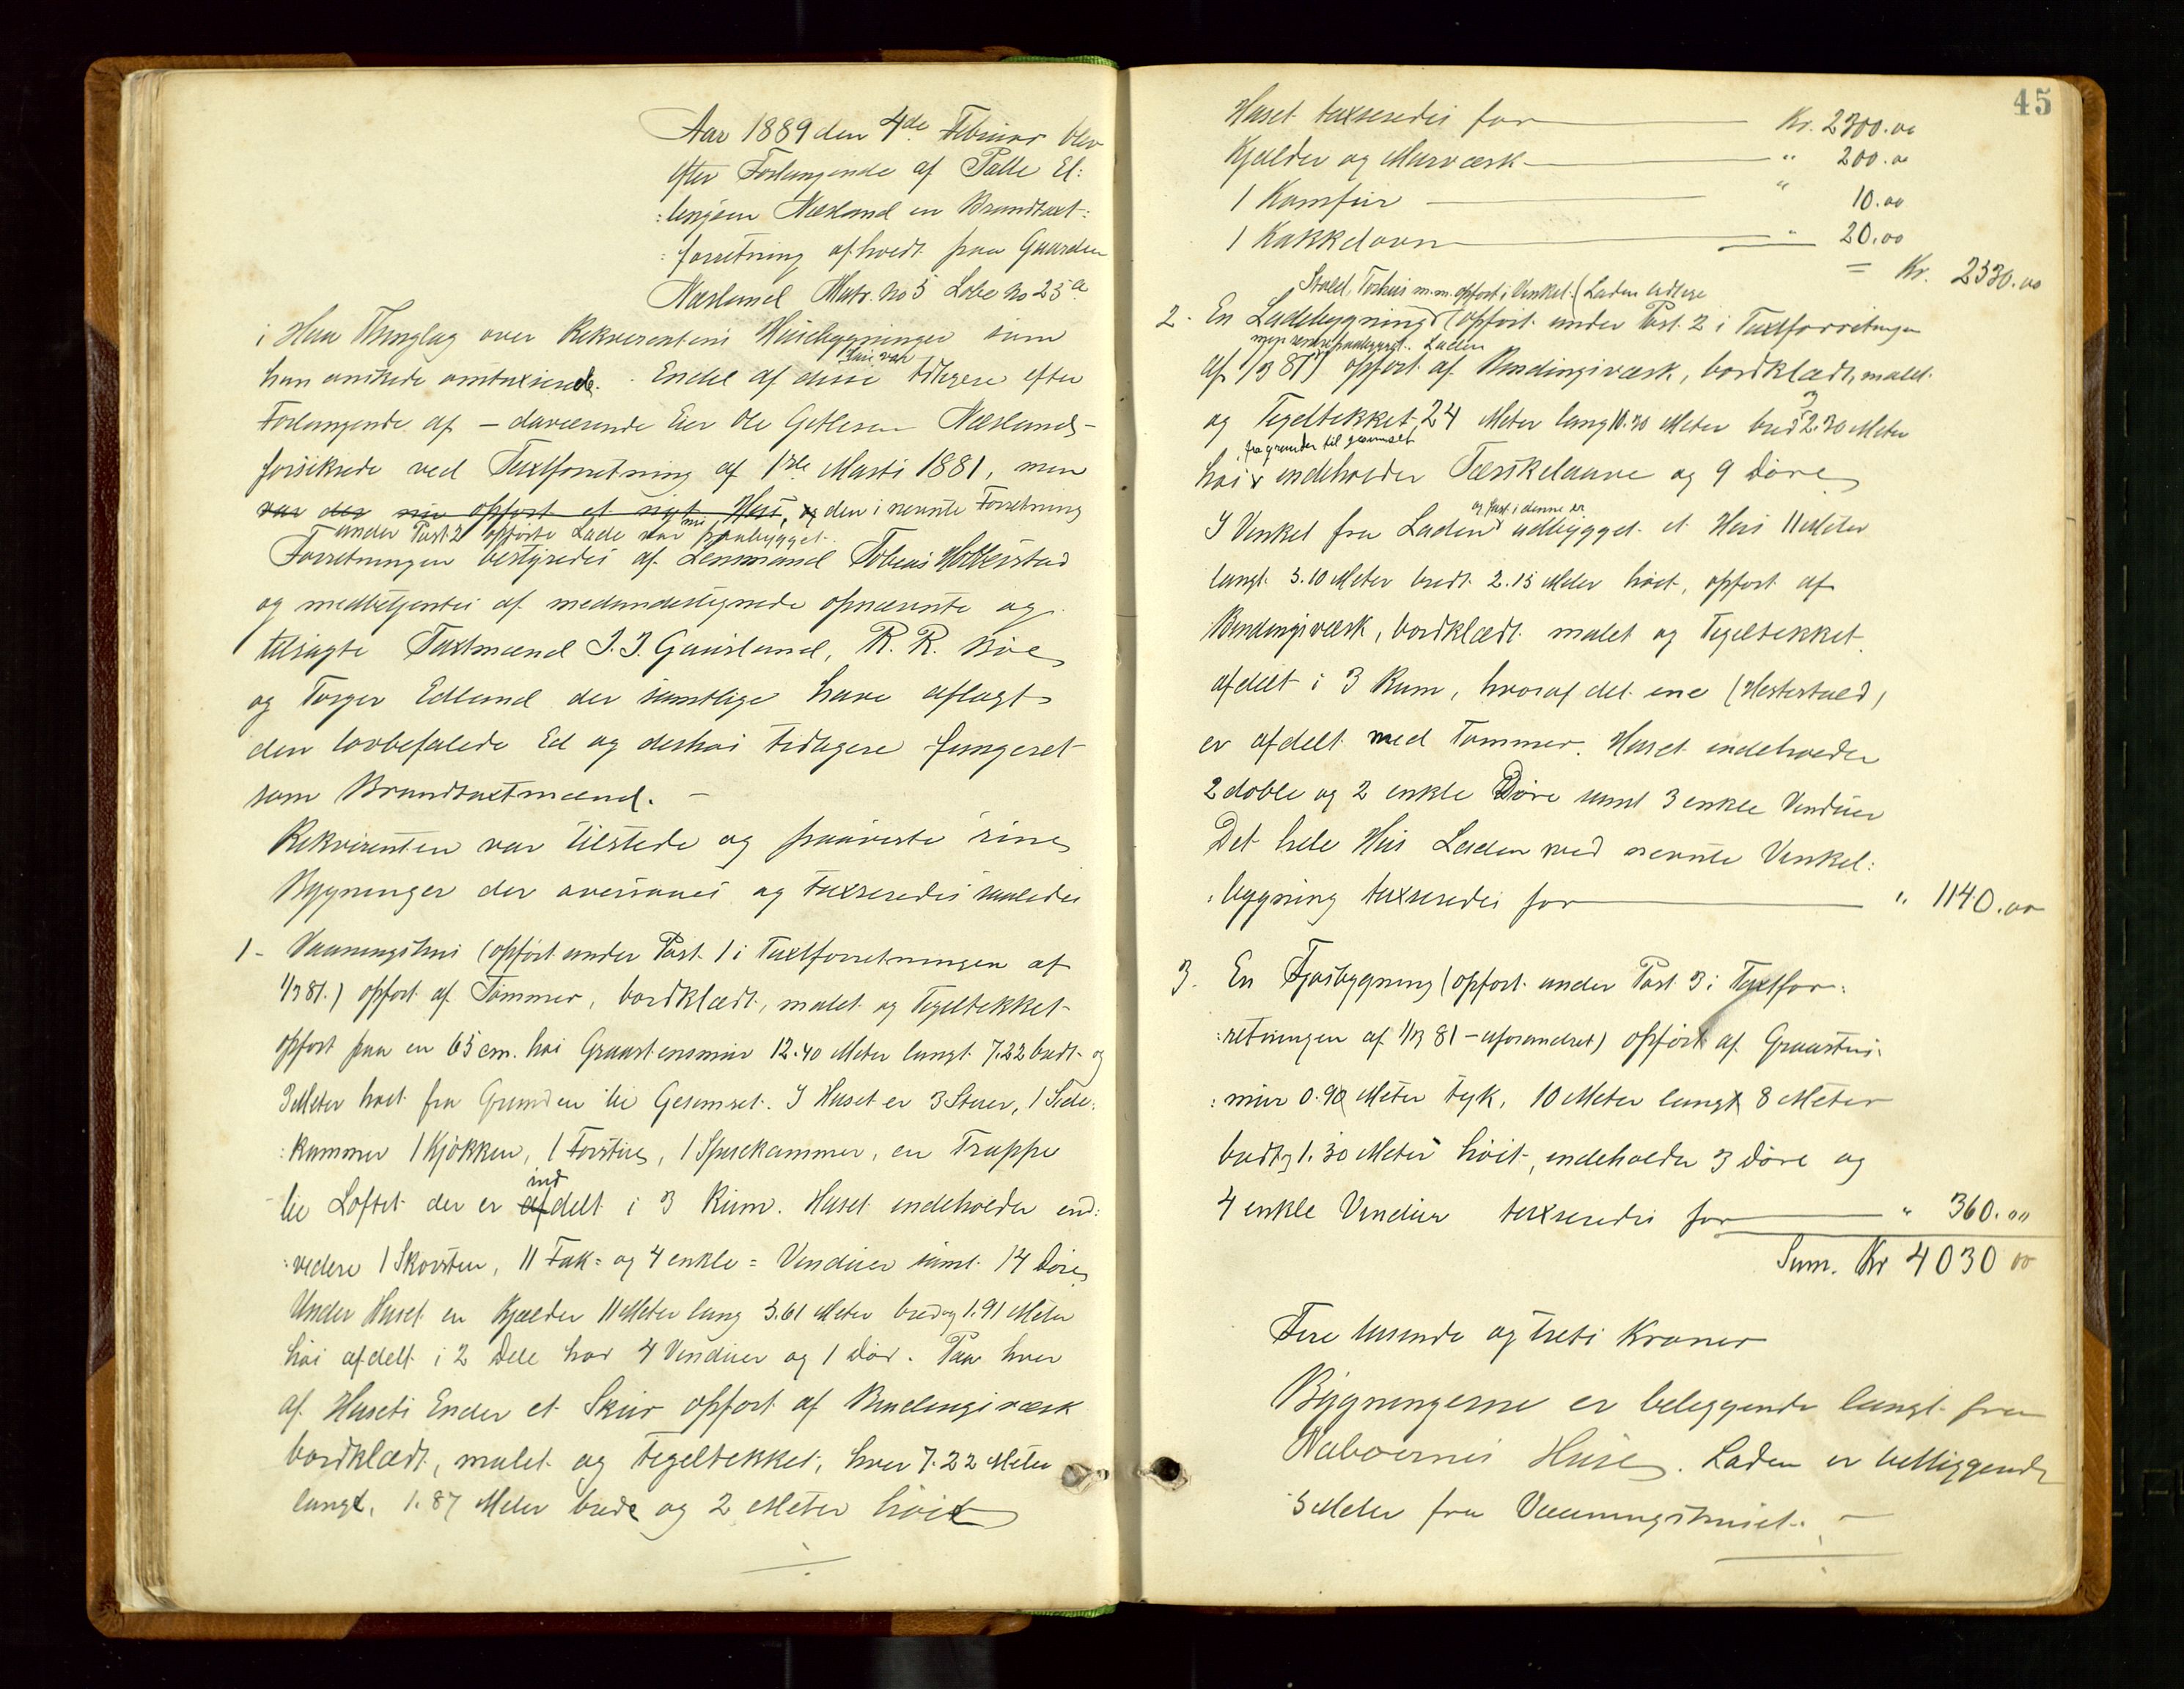 Aar 1889 den 4de Februar blev
efter Forlangende af Palle El:
:lingsen Næsland en Brandtaxt:
:forretning afholdt paa Gaarden
Næsland Matr. No 5 Løbe No 25a
i Haa Thinglag over Rekvirentens Husebygninger som
han ønskede omtaxserede. Endel af disse Huse var tidligere efter
Forlangende af – daværende Eier Ole Gitlesen Næsland –
forsikrede ved Taxtforretning af 1ste Marts 1881, men
var der nu opført et nyt Hus, og den i nævnte Forretning
under Post 2 opførte Lade var nu paabygget.
Forretningen bestyredes af Lensmand Tobias Hobberstad
og medbetjentes af medundertegnede opnævnte og
tilsagte Taxtmænd J. J. Gausland, R. R. Bøe
og Torger Edland der samtlige have aflagt
den lovbefalede Ed og deshos tidligere fungeret
som Brandtaxtmænd. –
Rekvirenten var tilstede og paaviste sine
Bygninger der oversaaes og taxseredes saaledes
1 - Vaaningshus (opført under Post 1 i Taxtforretningen af
1/3 81.) opført af Tømmer, bordklædt, malet og Tegeltekket
opført paa en 65 cm. høi Graastensmur 12.40 Meter langt 7.22 bredt og
3 Meter høit fra Grunden til Gesemset. I Huset er 3 Stuer, 1 Side:
:kammer 1 Kjøkken, 1 Forstue, 1 Spisekammer, en Trappe
til Loftet der er af ind delt i 3 Rum. Huset indeholder end:
:videre 1 Skorsten, 11 Fak= og 4 enkle = Vinduer samt 14 Døre
Under Huset en Kjælder 11 Meter lang 5.61 Meter bred og 1.91 Meter
høi afdelt i 2 Dele har 4 Vinduer og 1 Dør. Paa hver
af Husets Ender et Skur opført af Bindingsværk
bordklædt, malet og tegeltekket, hver 7.22 Meter
langt, 1.87 Meter bredt og 2 Meter høit
45
Huset taxseredes for Kr. 2300.00
Kjælder og Murværk " 200.00
1 Komfur " 10.00
1 Kakkelovn " 20.00
= Kr. 2530.00
Stald, Torvhus m.m. opført i Vinkel. (Laden tidligere
2. En Ladebygning (opført under Post 2 i Taxtforretningen
paabygget. Laden
af 1/3 81) opført af Bindingsværk, bordklædt, malet
og Tegeltekket 24 Meter lang 10.30 Meter bred 3 2.30 Meter
fra grunden til gesemset
høi indeholder Tærskelaave og 9 Døre
og fast i denne er
I Vinkel fra Laden udbygget et Hus 11 Meter
langt 5.10 Meter bredt 2.15 Meter høit, opført af
Bindingsværk, bordklædt malet og Tegeltekket
afdelt i 3 Rum, hvoraf det ene (Hestestald)
er afdelt med Tømmer. Huset indeholder
2 doble og 2 enkle Døre samt 3 enkle Vinduer
Det hele Hus Laden med nævnte Vinkel:
:bygning taxseredes for " 1140.00
3. En Fjøsbygning (opført under Post 3 i Taxtfor:
:retningen af 1/3 81 – uforandret) opført af Graastens:
:mur 0.90 Meter tyk, 10 Meter langt 8 Meter
bredt og 1.30 Meter høit, indeholder 3 Døre og
4 enkle Vinduer taxseredes for " 360.00
Sum. Kr 4030 00
Fire tusinde og treti Kroner
Bygningerne er beliggende langt fra
Naboernes Huse. Laden er belliggende
5 Meter fra Vaaningshuset. –